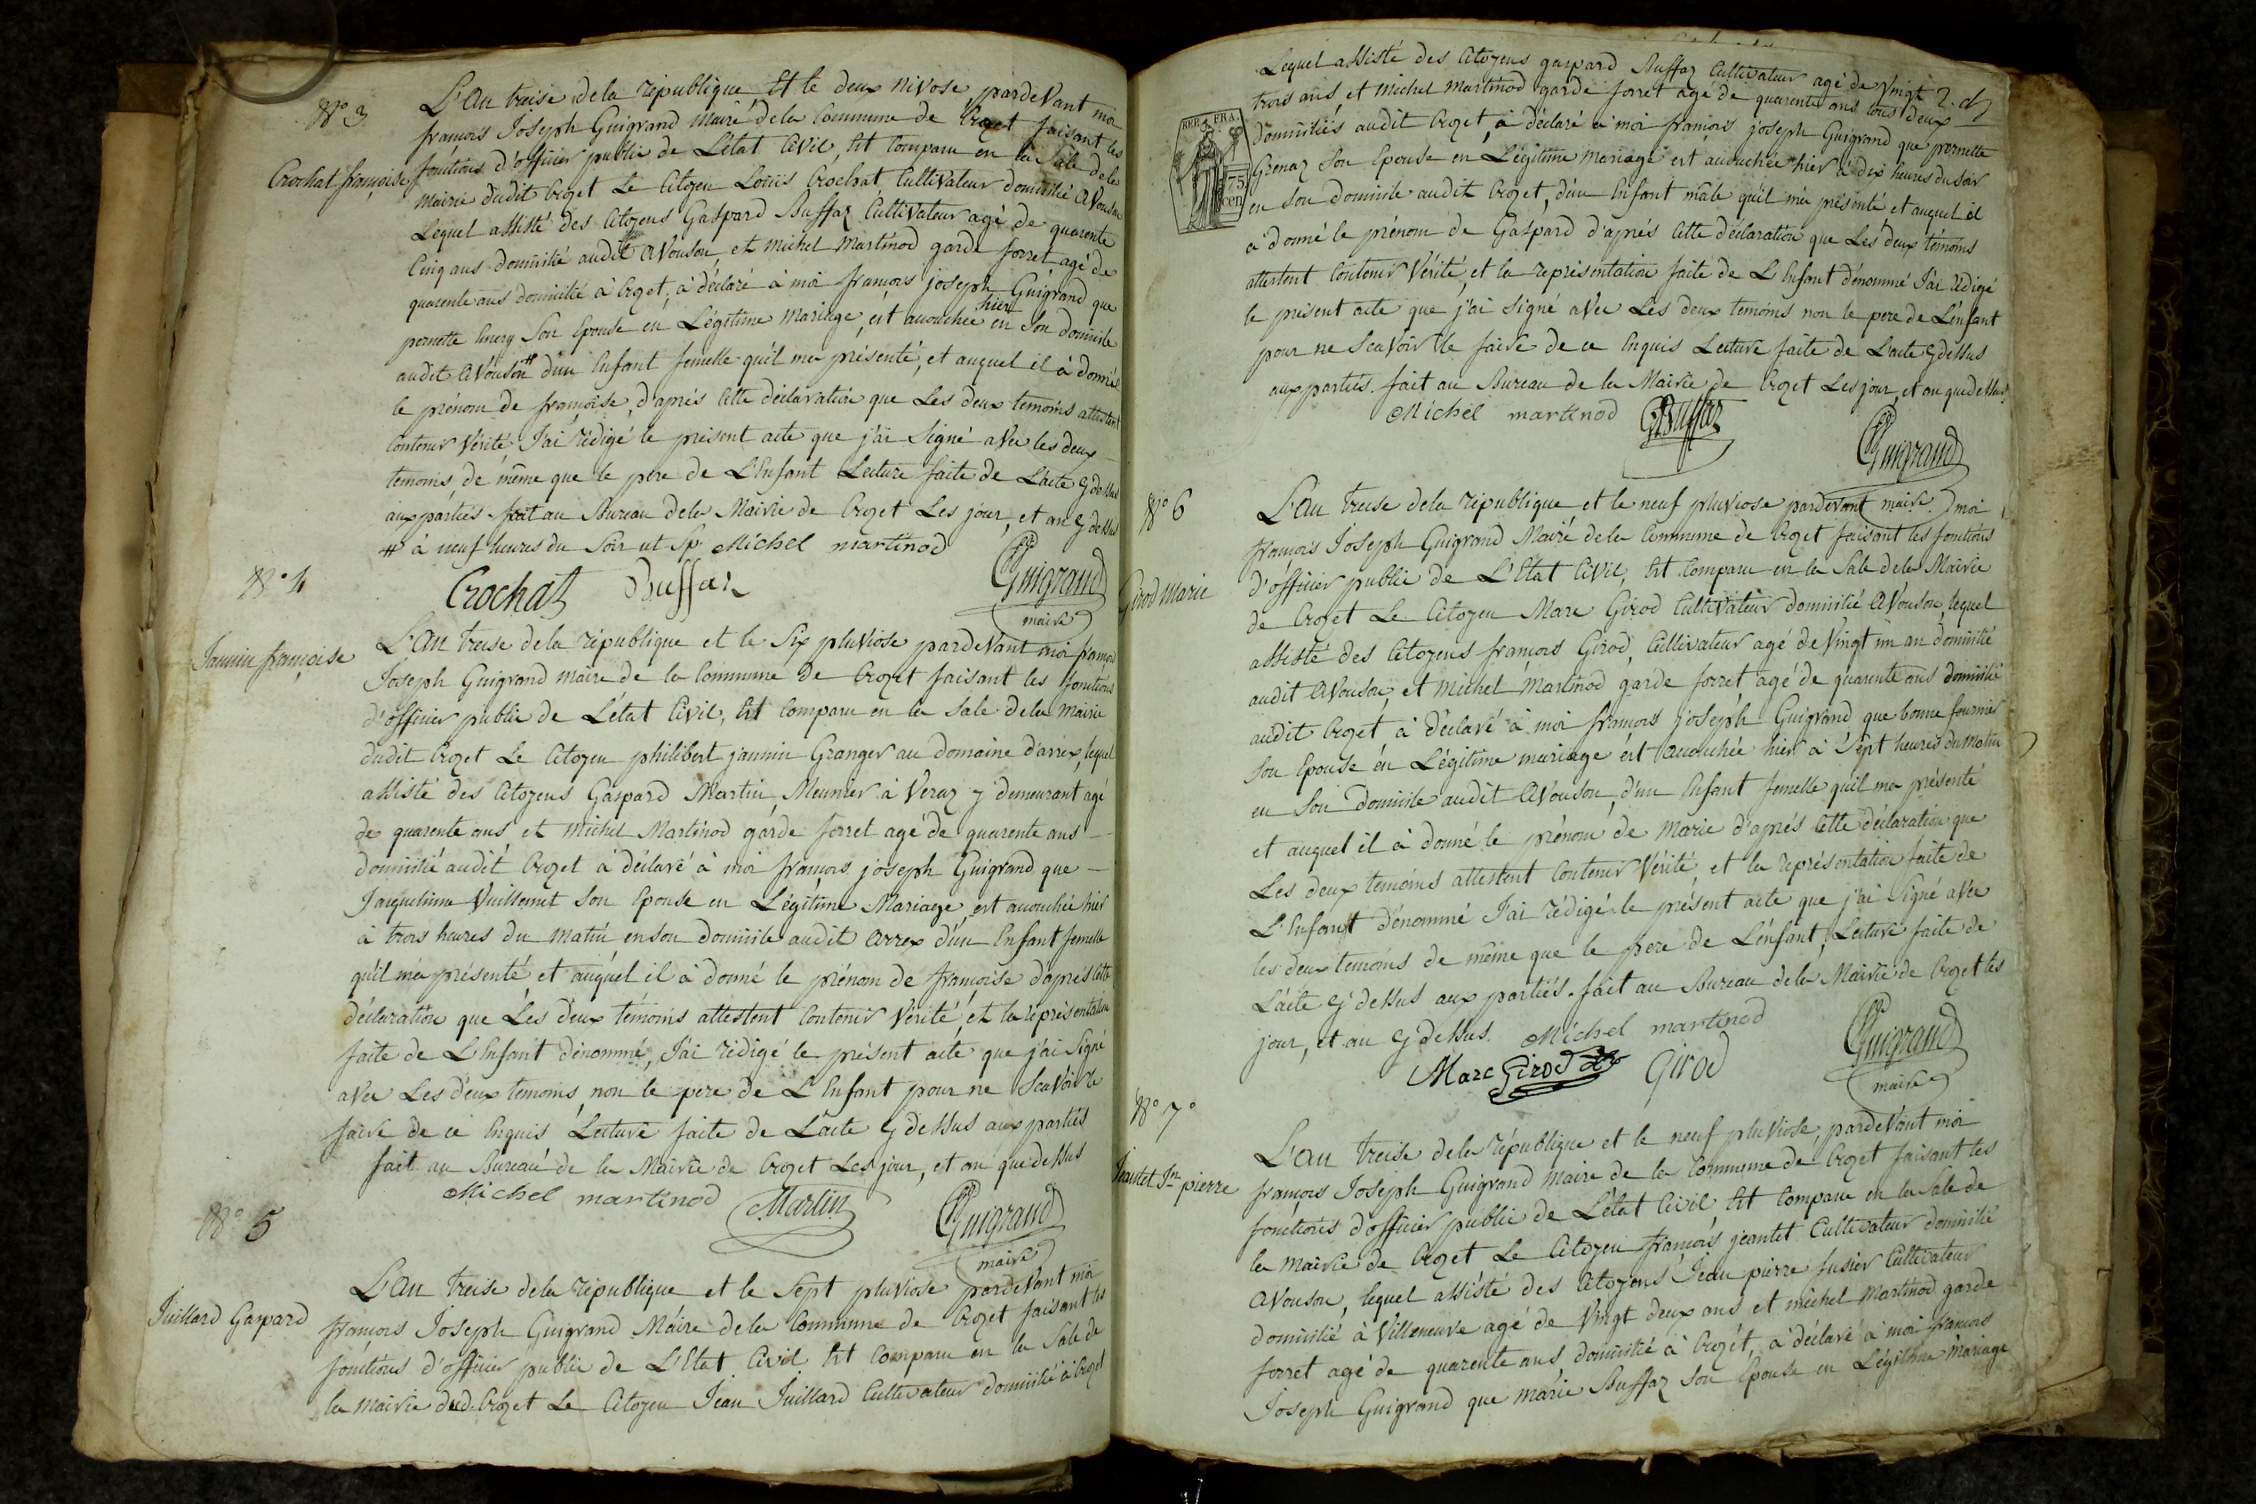 N° 3
Crochat françoise
L'An treise dela republique Et le deux Nivose pardeVant moi
françois Joseph Guigrand Maire dela Commune de Crozet faisant les
fonctions d'officier public de L'état Civil, Est Comparu en la Sale dela
Mairie dudit Crozet Le Citoyen Loüis Crochat Cultivateur domicilié AVouson
Lequel assisté des Citoyens Gaspard Buffaz Cultivateur agé de quarente
Cinq ans domicilié audit AVouson, et Michel Martinod garde forret agé de
quarente ans domicilié à Crozet, à déclaré à moi françois joseph Guigrand que
pernette Emery Son Epouse en Légitime Mariage, est acouchée hier en Son domicile
audit AVouson # d'un Enfant femelle qu'il ma présenté, et auquel il à donné
le prénom de françoise, d'après Cette déclaration que Les deux temoins attestent
Contenir Vérité, J'ai rédigé le présent acte que j'ai Signé aVec les deux
temoins, de même que le père de L'Enfant Lecture faite de L'acte Cy dessus
aux parties fait au Bureau dela Mairie de Crozet Les jour, et an Cy dessus
# à neuf heures du Soir ut Sp. Michel martinod
Crochat Buffaz Guigrand
maire
N° 4
Jannin françoise
L'An treise dela république et le Six pluviose pardeVant moi françois
Joseph Guigrand maire de la Commune de Crozet faisant les fonctions
d'officier public de L'état Civil, Est Comparu en la Sale dela Mairie
dudit Crozet Le Citoyen philibert jannin Granger au domaine d'arrex, lequel
assisté des Citoyens Gaspard Martin, Meunier à Veraz y demeurant agé
de quarente ans et Michel Martinod garde forret agé de quarente ans
domicilié audit Crozet à déclaré à moi françois joseph Guigrand que
Jaqueline Vuillemet Son Epouse en Légitime Mariage, est acouchée hier
à trois heures du Matin en son domicile audit Arrex d'un Enfant femelle
qu'il ma présenté, et auquel il à donné le prénom de françoise d'après Cette
déclaration que Les deux témoins attestent Contenir Vérité, et la représentation
faite de L'Enfant dénommé, J'ai rédigé le présent acte que j'ai Signé
aVec Les deux temoins, non le pere de L'Enfant pour ne ScaVoir le
faire de ce Enquis Lecture faite de L'acte Cy dessus aux parties
fait au Bureau de la Mairie de Crozet Les jour, et an que dessus
Michel martinod Martin Guigrand
maire
N° 5
Juillard Gaspard
L'An treise dela république et le Sept pluviose pardeVant moi
françois Joseph Guigrand Maire dela Commune de Crozet faisant les
fonctions d'officier public de L'Etat Civil Est Comparu en la Sale de
la Mairie dud. Crozet Le Citoyen Jean Juillard Cultivateur domicilié à Crozet
2.
REP. FRA.
75
cen
Lequel assisté des Citoyens gaspard Buffaz Cultivateur agé de Vingt
trois ans, et Michel Martinod garde forret agé de quarente ans tous deux
domiciliés audit Crozet, à déclaré à moi françois joseph Guigrand que pernette
Grenaz Son Epouse en Légitime Mariage est acouchée hier à dix heures du Soir
en Son domicile audit Crozet, d'un Enfant mâle qu'il ma présenté et auquel il
a donné le prénom de Gaspard d'après Cette déclaration que Les deux témoins
attestent Contenir Vérité, et la représentation faite de L'Enfant dénommé J'ai rédigé
le présent acte que j'ai Signé aVec Les deux temoins non le pere de L'enfant
pour ne ScaVoir le faire de ce Enquis Lecture faite de L'acte Cy dessus
aux parties. fait au Bureau de la Mairie de Crozet Les jour, et an que dessus.
Michel martinod GBuffaz
Guigrand
maire
N° 6
Girod Marie
L'An treise dela république et le neuf pluviose pardevant moi
françois Joseph Guigrand Maire dela Commune de Crozet faisant les fonctions
d'officier public de L'Etat Civil, Est Comparu en la Sale dela Mairie
de Crozet Le Citoyen Marc Girod Cultivateur domicilié AVouson, lequel
assisté des Citoyens françois Girod, Cultivateur agé de Vingt un an domicilié
audit AVouson, et Michel Martinod garde forret agé de quarente ans domicilié
audit Crozet à déclaré à moi françois joseph Guigrand que bonne fournier
Son Epouse en Légitime mariage est acouchée hier à Sept heures du Matin
en Son Domicile audit AVouson, d'un Enfant femelle qu'il ma présenté
et auquel il à donné le prénom de Marie d'après Cette déclaration que
Les deux temoins attestent Contenir Vérité, et la représentation faite de
L'Enfant dénommé J'ai rédigé le présent acte que j'ai Signé aVec
les deux temoins de même que le pere de L'enfant, Lecture faite de
L'acte Cy dessus aux parties. fait au Bureau dela Mairie de Crozet les
jour, et an Cy dessus. Michel martinod
Marc Girod Girod Guigrand
maire
N° 7°
Jeantet Jn pierre
L'an treise dela république et le neuf pluviose, pardeVant moi
françois Joseph Guigrand Maire de la Commune de Crozet faisant les
fonctions d'officier public de L'état Civil Est Comparu en la Sale de
la Mairie de Crozet Le Citoyen françois jeantet Cultivateur domicilié
AVouson, lequel assisté des Citoyens Jean pierre fusier Cultivateur
domicilié à Villeneuve agé de Vingt deux ans et michel Martinod garde
forret agé de quarente ans domicilié à Crozet, à déclaré à moi françois
Joseph Guigrand que marie Buffaz Son Epouse en Légitime Mariage